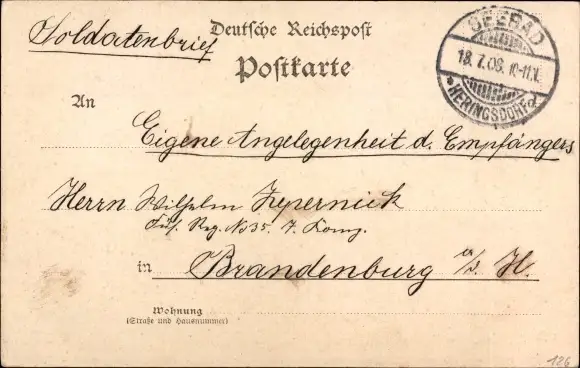 Soldatenbrief
Deutsche Reichspost
Postkarte
SEEBAD
18.7.06. 10-11V.
* HERINGSDORF *
An
Eigene Angelegenheit d. Empfängers
Herrn Wilhelm Zypernick
Füs. Reg. No 35. 7. Komp.
in Brandenburg a/d. H.
Wohnung
(Straße und Hausnummer)
126